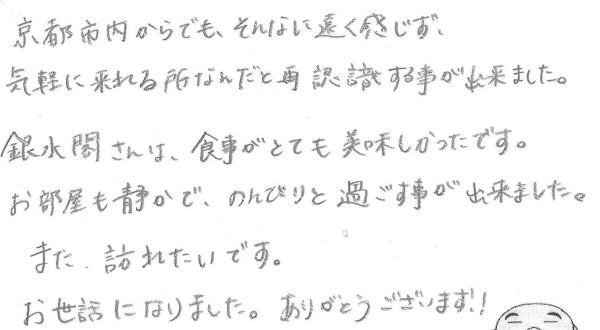 京都市内からでも、そんなに遠く感じず、
気軽に来れる所なんだと再認識する事が出来ました。
銀水閣さんは、食事がとても美味しかったです。
お部屋も静かで、のんびりと過ごす事が出来ました。
また、訪れたいです。
お世話になりました。ありがとうございます!!